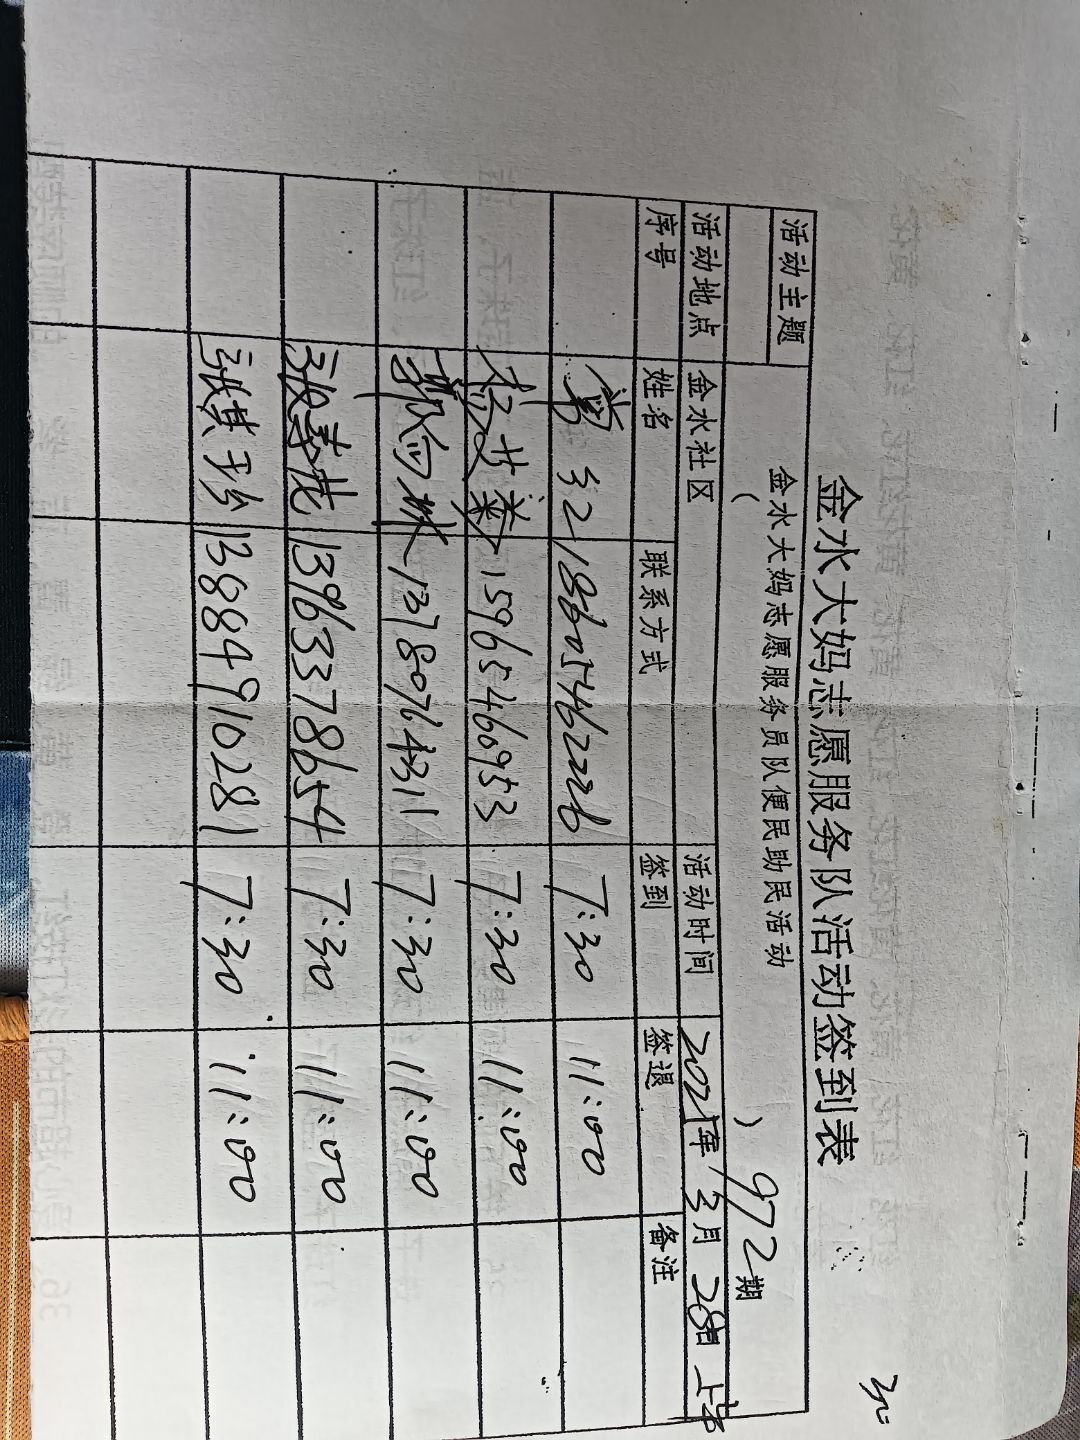 金水大妈志愿服务队活动签到表
活动主题 金水大妈志愿服务员队便民助民活动
( ) 972期
活动地点 金水社区 活动时间 2021年3月28日 上午
序号 姓名 联系方式 签到 签退 备注
18605462226 7:30 11:00
15965460953 7:30 11:00
13780764311 7:30 11:00
13963378654 7:30 11:00
张其珍 13884910281 7:30 11:00